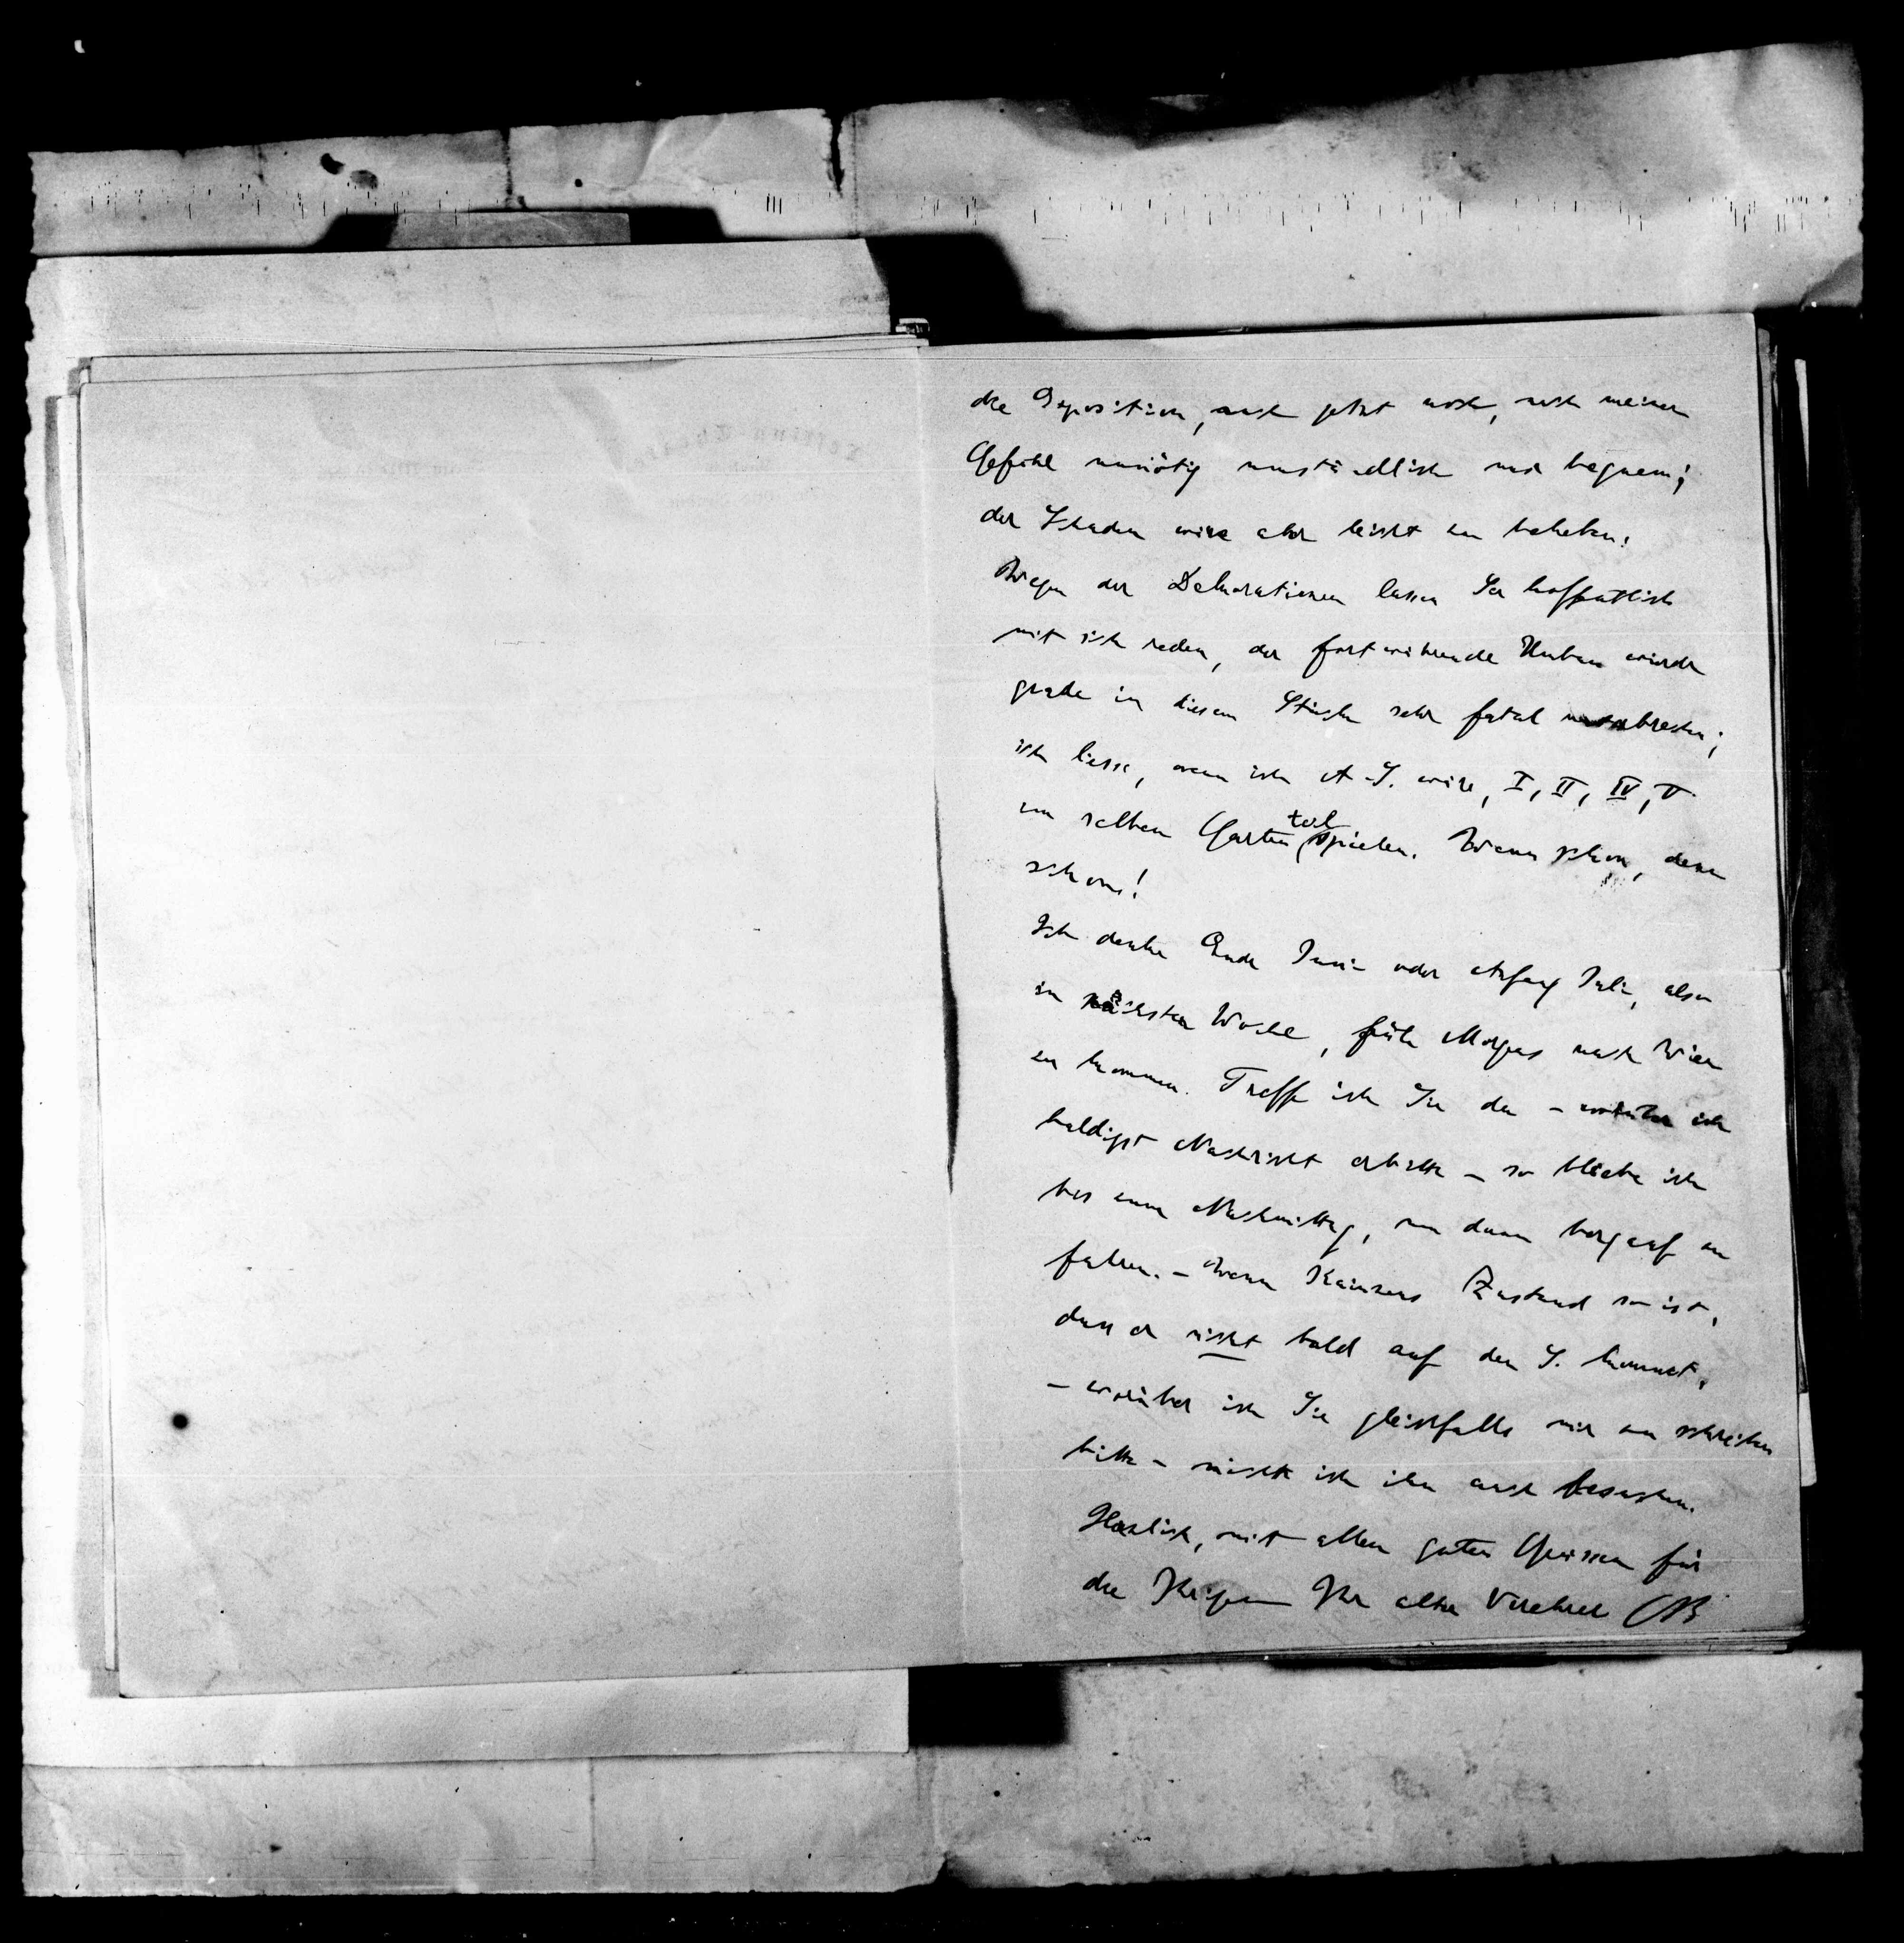 die Exposition, auch jetzt noch, nach meinem
Gefühl unnötig umständlich und bequem;
der Schaden wäre aber leicht zu beheben.
Wegen der Dekorationen lassen Sie hoffentlich
mit sich reden, der fortwährende Umbau würde
grade in diesem Stücke sehr fatal
ich liesse, wenn ich A. S. wäre, I, II, IV, V
im selben Gartenteil spielen. Wenn schon, denn
schon!
Ich denke Ende Juni oder Anfang Juli, also
in nächster Woche, früh Morgens nach Wien
zu kommen. Treffe ich Sie da – worüber ich
baldigst Nachricht erbitte – so bliebe ich
bis zum Nachmittag, um dann bergauf zu
fahren. – Wenn Kainzens Zustand so ist,
dass er nicht bald auf den S. kommt,
– worüber ich Sie gleichfalls mir zu schreiben
bitte – möchte ich ihn auch besuchen.
Herzlich, mit allen guten Grüssen für
die Ihrigen Ihr alter Verehrer OB